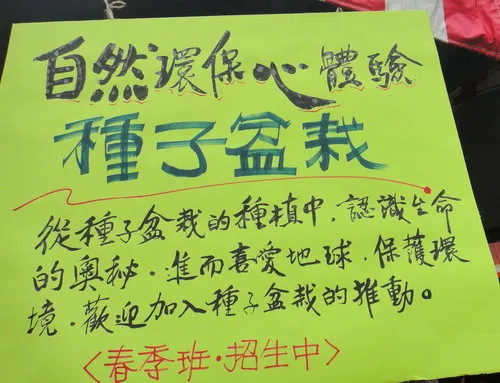 自然環保心體驗
種子盆栽
從種子盆栽的種植中,認識生命
的奧秘,進而喜愛地球,保護環
境,歡迎加入種子盆栽的推動。
<春季班·招生中>